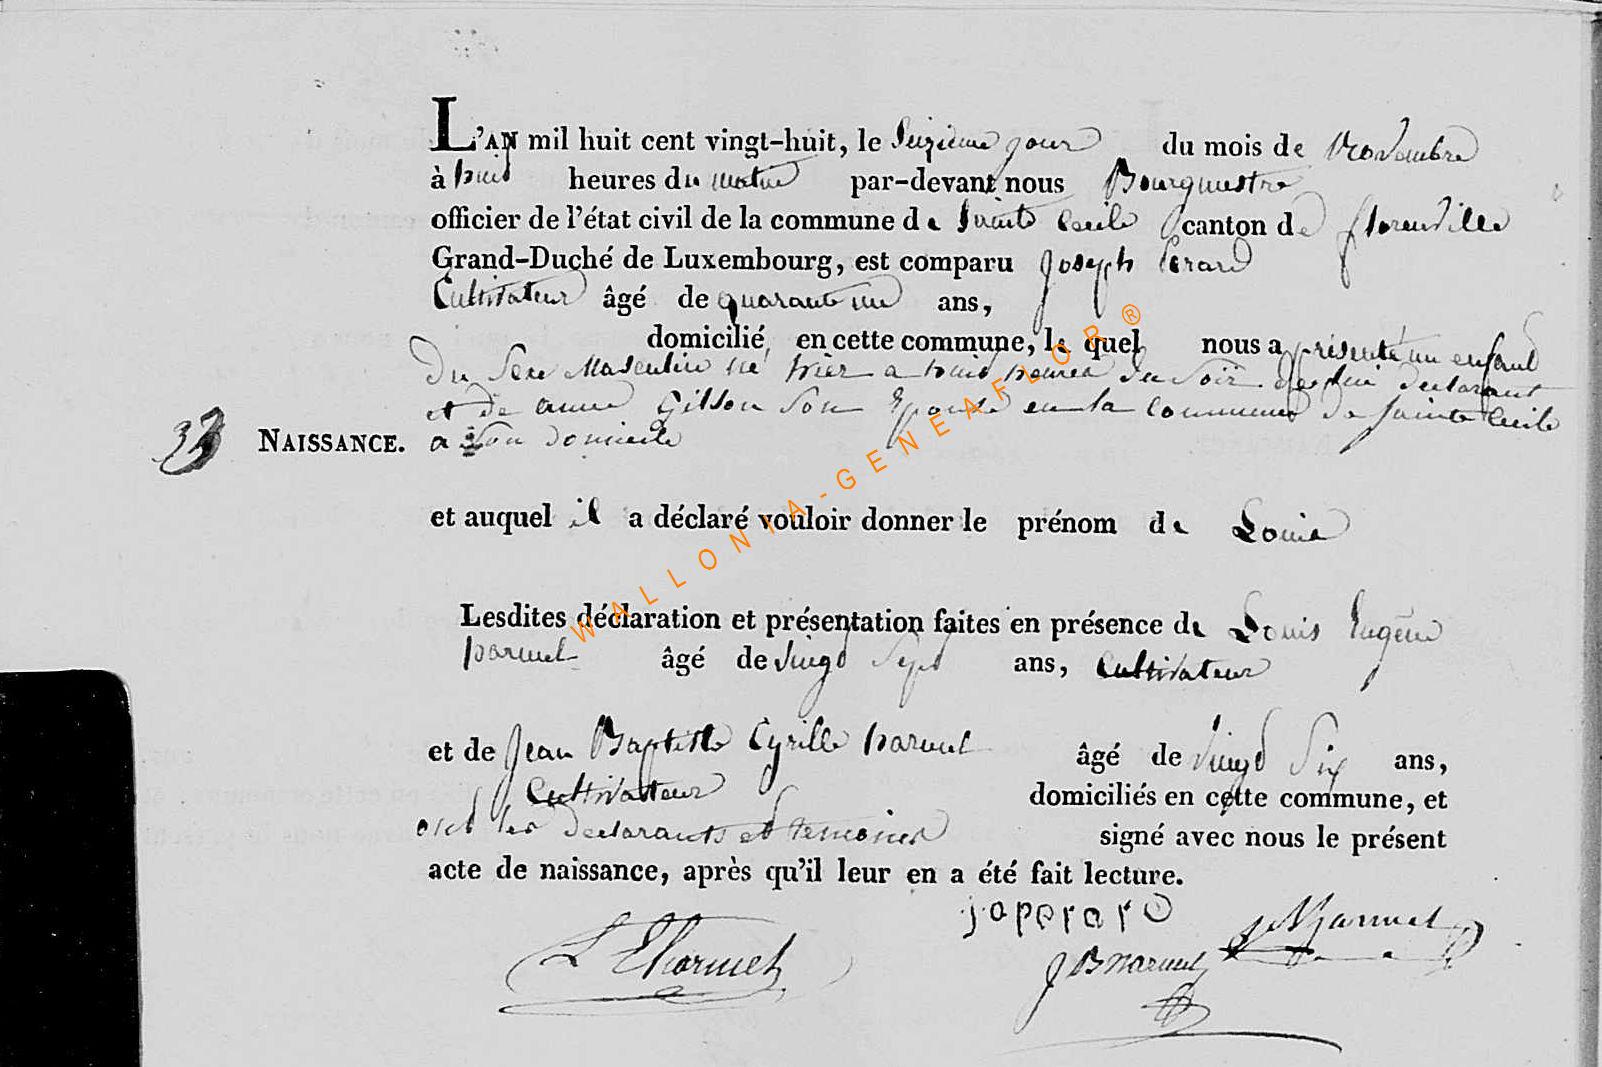 L'AN mil huit cent vingt-huit, le Seizieme jour du mois de Novembre
à huit heures du matin par-devant nous Bourgmestre
officier de l'état civil de la commune de Sainte Cecile canton de florenville
Grand-Duché de Luxembourg, est comparu Joseph
Cultivateur âgé de quarante un ans,
domicilié en cette commune, le quel nous a présenté un enfant
Du Sexe Masculin né hier a huit heures du Soir de lui declarant
et de anne Gilson Son Epouse en la commune de Sainte Cecile
NAISSANCE. a Son domicile
et auquel il a déclaré vouloir donner le prénom de Louis
Lesdites déclaration et présentation faites en présence de Louis Eugêne
âgé de vingt Sept ans, Cultivateur
et de Jean Baptiste Cyrille âgé de vingt Six ans,
Cultivateur domiciliés en cette commune, et
ont les declarants et temoins signé avec nous le présent
acte de naissance, après qu'il leur en a été fait lecture.
WALLONIA-GENEAFLOR ®